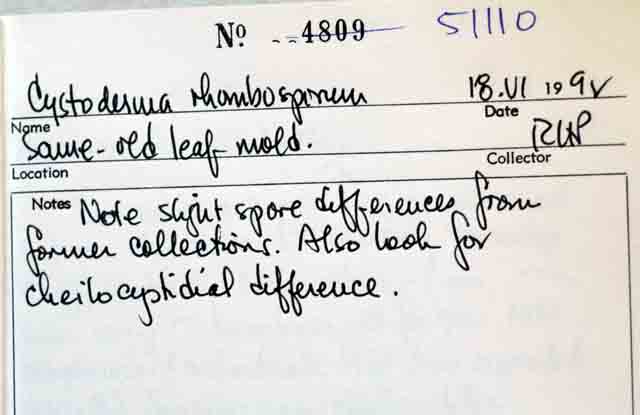 Nº 4809 51110
Cystoderma rhombosporum 18.VI 199V
Name Date
Same - old leaf mold. RLP
Location Collector
Notes Note slight spore differences from
former collections. Also look for
cheilocystidial difference.